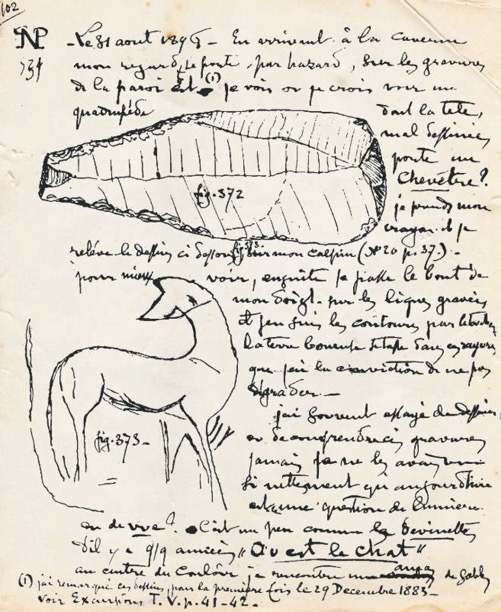 102
NP
- Le 31 aout 189 - En arrivant à la caverne
mon regard, se porte, par hazard, sur les gravures
de la paroi Est. (1) je vois ou je crois voir un
quadrupède dont la tête,
mal dessinée,
porte un
Chevêtre?
je prends mon
crayon et je
fig. 372
relève le dessin ci dessous fig. 373 sur mon calepin (N° 20 p. 37.) -
pour mieux voir, ensuite je passe le bout de
mon doigt sur les lignes gravées
et j'en suis les contours
la terre boueuse dans ces rayures
que j'ai la conviction de ne pas
dégrader -
j'ai souvent essayé de dessiner,
ou de comprendre ces gravures
jamais je ne les avais vues
si nettement qu'aujourd'hui
est-ce question de lumière
fig. 373 -
ou de vue? C'est un peu comme les devinettes
d'il y a q/q années "Où est le chat"
au centre du Couloir je rencontre un amas de sable
(1) j'ai remarqué ces dessins, pour la première fois le 29 Decembre 1883 -
voir Excursions T. V. p. 41 - 42 -